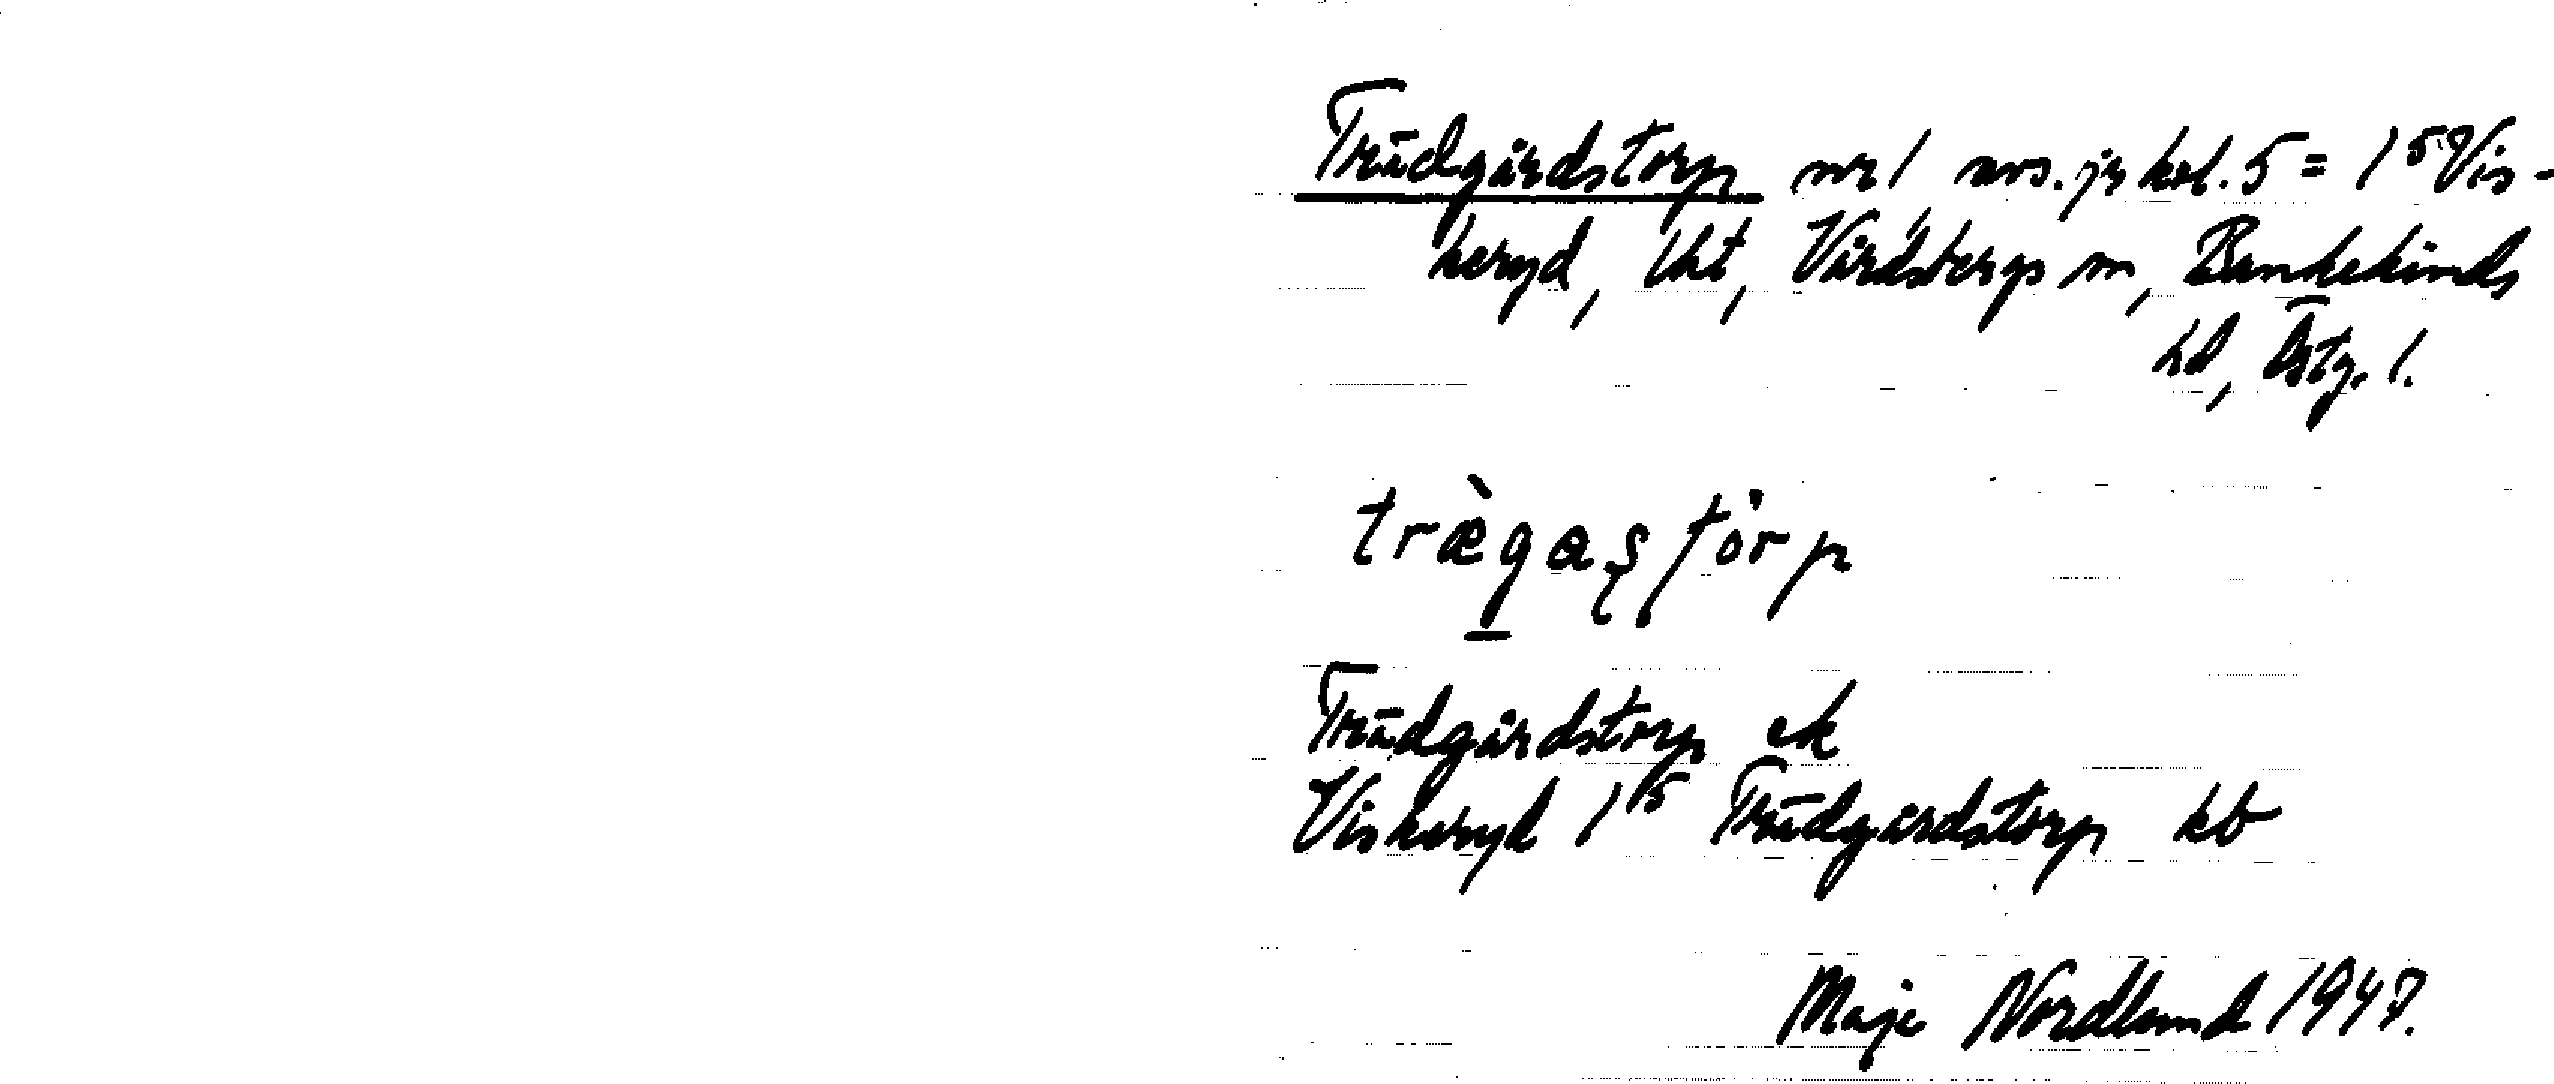 Trädgårdstorp nr 1 avs. jr kol. 5 = 1⁵ Vis-
keryd, Uht, Vårdsbergs sn, Bankekinds
hd, Östg. l.
trægaștȯrp
Trädgårdstorp ek
Viskeryd 1⁵ Trädgårdstorp kb
Maje Nordlund 1947.